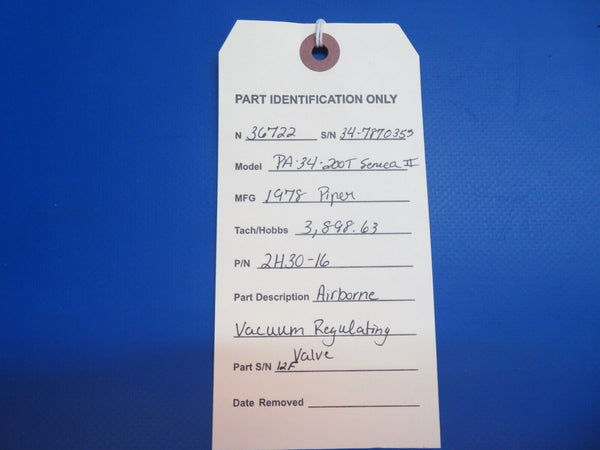 PART IDENTIFICATION ONLY
N 36722 S/N 34-7870355
Model PA-34-200T Seneca II
MFG 1978 Piper
Tach/Hobbs 3,898.63
P/N 2H30-16
Part Description Airborne
Vacuum Regulating
Valve
Part S/N 12F
Date Removed